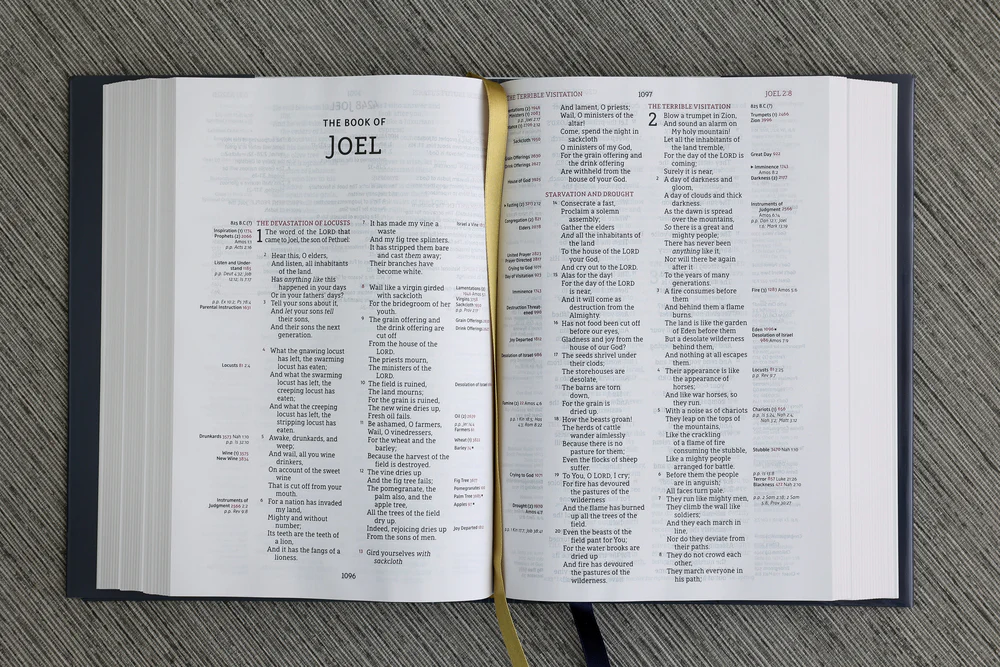 THE BOOK OF
JOEL
825 B C (?)
Inspiration (1) 1774
Prophets (2) 2066
Amos 1:1
p.p. Acts 2:16
Listen and Under-
stand
Parental Instruction 1631
Locusts
Drunkards
Wine (1)
New Wine
Instruments of
Judgment
p.p. Rev 9:8
THE DEVASTATION OF LOCUSTS
1 The word of the LORD that
came to Joel, the son of Pethuel:
2 Hear this, O elders,
And listen, all inhabitants
of the land.
Has anything like this
happened in your days
Or in your fathers' days?
3 Tell your sons about it,
And let your sons tell
their sons,
And their sons the next
generation.
4 What the gnawing locust
has left, the swarming
locust has eaten;
And what the swarming
locust has left, the
creeping locust has
eaten;
And what the creeping
locust has left, the
stripping locust has
eaten.
5 Awake, drunkards, and
weep;
And wail, all you wine
drinkers,
On account of the sweet
wine
That is cut off from your
mouth.
6 For a nation has invaded
my land,
Mighty and without
number;
Its teeth are the teeth of
a lion,
And it has the fangs of a
lioness.
7 It has made my vine a
waste
And my fig tree splinters.
It has stripped them bare
and cast them away;
Their branches have
become white.
8 Wail like a virgin girded
with sackcloth
For the bridegroom of her
youth.
9 The grain offering and
the drink offering are
cut off
From the house of the
LORD.
The priests mourn,
The ministers of the
LORD.
10 The field is ruined,
The land mourns;
For the grain is ruined,
The new wine dries up,
Fresh oil fails.
11 Be ashamed, O farmers,
Wail, O vinedressers,
For the wheat and the
barley;
Because the harvest of
the field is destroyed.
12 The vine dries up
And the fig tree fails;
The pomegranate, the
palm also, and the
apple tree,
All the trees of the field
dry up.
Indeed, rejoicing dries up
From the sons of men.
13 Gird yourselves with
sackcloth
Lamentations
Virgins
Sackcloth
Grain Offerings
Drink Offerings
Oil (2)
Farmers
Wheat (1)
Barley
Fig Tree
Pomegranates
Palm Tree
Apples
Joy Departed
1096
THE TERRIBLE VISITATION
1097
JOEL 2:8
Sackcloth
House of God
Fasting (2)
Congregation (2)
Elders
United Prayer
Prayer Directed
Crying to God
Imminence 1743
Destruction Threat-
ened
Joy Departed
Desolation of Israel
Crying to God
Drought (2)
And lament, O priests;
Wail, O ministers of the
altar!
Come, spend the night in
sackcloth
O ministers of my God,
For the grain offering and
the drink offering
Are withheld from the
house of your God.
STARVATION AND DROUGHT
14 Consecrate a fast,
Proclaim a solemn
assembly;
Gather the elders
And all the inhabitants of
the land
To the house of the LORD
your God,
And cry out to the LORD.
15 Alas for the day!
For the day of the LORD
is near,
And it will come as
destruction from the
Almighty.
16 Has not food been cut off
before our eyes,
Gladness and joy from the
house of our God?
17 The seeds shrivel under
their clods;
The storehouses are
desolate,
The barns are torn
down,
For the grain is
dried up.
18 How the beasts groan!
The herds of cattle
wander aimlessly
Because there is no
pasture for them;
Even the flocks of sheep
suffer.
19 To You, O LORD, I cry;
For fire has devoured
the pastures of the
wilderness
And the flame has burned
up all the trees of the
field.
20 Even the beasts of the
field pant for You;
For the water brooks are
dried up
And fire has devoured
the pastures of the
wilderness.
THE TERRIBLE VISITATION
2 Blow a trumpet in Zion,
And sound an alarm on
My holy mountain!
Let all the inhabitants of
the land tremble,
For the day of the LORD is
coming;
Surely it is near,
2 A day of darkness and
gloom,
A day of clouds and thick
darkness.
As the dawn is spread
over the mountains,
So there is a great and
mighty people;
There has never been
anything like it,
Nor will there be again
after it
To the years of many
generations.
3 A fire consumes before
them
And behind them a flame
burns.
The land is like the garden
of Eden before them
But a desolate wilderness
behind them,
And nothing at all escapes
them.
4 Their appearance is like
the appearance of
horses;
And like war horses, so
they run.
5 With a noise as of chariots
They leap on the tops of
the mountains,
Like the crackling
of a flame of fire
consuming the stubble,
Like a mighty people
arranged for battle.
6 Before them the people
are in anguish;
All faces turn pale.
7 They run like mighty men,
They climb the wall like
soldiers;
And they each march in
line,
Nor do they deviate from
their paths.
8 They do not crowd each
other,
They march everyone in
his path;
825 B C (?)
Trumpets (1)
Zion
Great Day
Imminence 1743
Amos 8:2
Darkness (2)
Instruments of
Judgment
Amos 6:14
Fire (1)
Eden
Desolation of Israel
Locusts
p.p. Rev 9:7
Chariots (1)
Stubble
Terror
Blackness